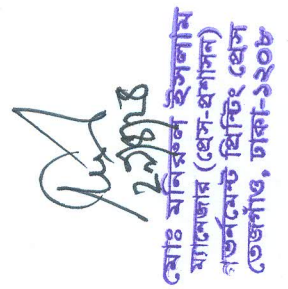 মোঃ মনিরুল ইসলাম
ম্যানেজার (প্রেস-প্রশাসন)
গভর্নমেন্ট প্রিন্টিং প্রেস
তেজগাঁও, ঢাকা-১২০৮